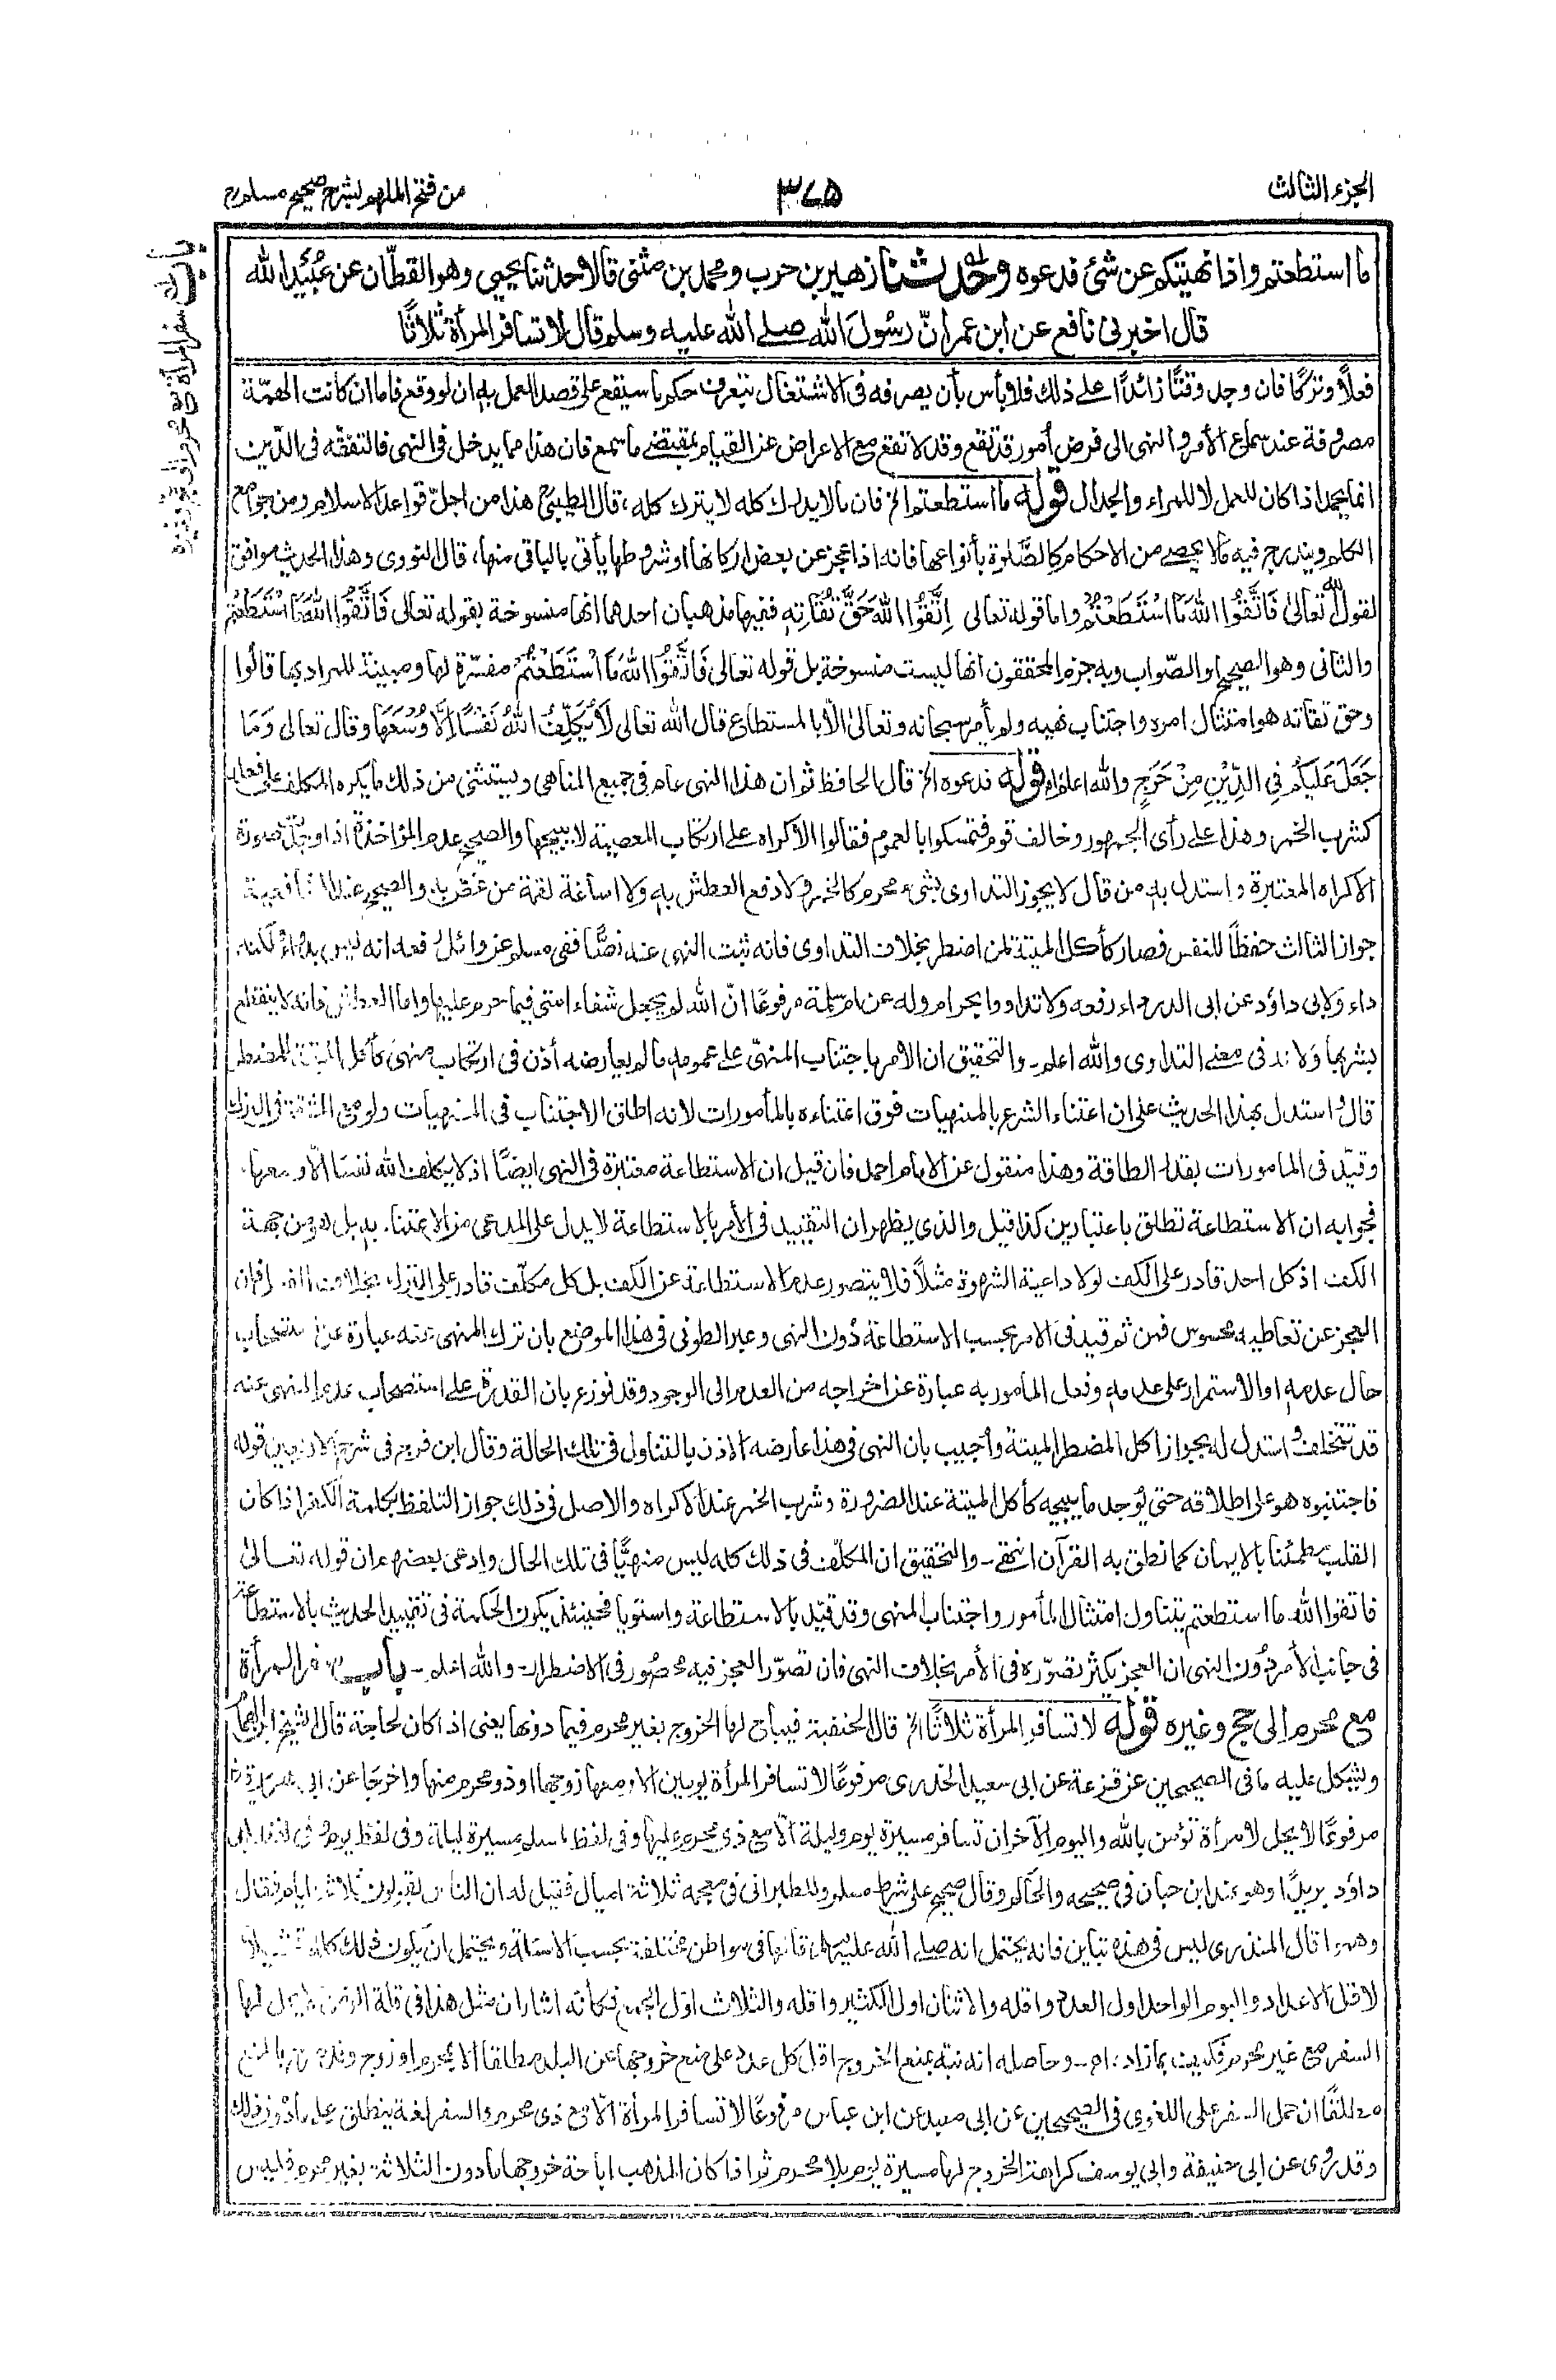 الجزء الثالث
٣٧٥
من فتح الملهم لشرح صحيح مسلم
باب سفر المرأة مع محرم الى حج وغيره
ما استطعتم واذا نهيتكم عن شئ فدعوه وحدثنا زهير بن حرب ومحمد بن مثنى قالا حدثنا يحيى وهو القطّان عن عُبَيْد الله
قال اخبرنى نافع عن ابن عمر انّ رسُولَ الله صلے الله عليه وسلم قال لا تسافر المرأة ثلاثًا
فعلاً وتركًا فان وجد وقتًا زائدًا على ذلك فلا بأس بأن يصرفه فى الاشتغال بتعرف حكم ما سيقع على قصد العمل به ان لو وقع فاما ان كانت الهمّة
مصروفة عند سماع الأمر والنهى الى فرض أمور قد تقع وقد لا تقع مع الاعراض عن القيام بمقتضے ما سمع فان هذا مما يدخل فى النهى فالتفقه فى الدّين
انما يحمد اذا كان للعمل لا للمراء والجدال قوله ما استطعتم الخ فان ما لا يدرك كله لا يترك كله، قال الطيبىؒ هذا من اجلّ قواعد الاسلام ومن جوامع
الكلم ويندرج فيه ما لا يحصے من الاحكام كالصَّلوة بأنواعها فانه اذا عجز عن بعض اركانها او شروطها يأتى بالباقى منها، قال النووى وهذا الحديث موافق
لقول الله تعالىٰ فَاتَّقُوا اللهَ مَا اسْتَطَعْتُمْ واما قوله تعالى اِتَّقُوا اللهَ حَقَّ تُقَاتِهٖ ففيها مذهبان احدهما انها منسوخة بقوله تعالى فَاتَّقُوا اللهَ مَا اسْتَطَعْتُمْ
والثانى وهو الصحيح او الصّواب وبه جزم المحققون انها ليست منسوخة بل قوله تعالى فَاتَّقُوا اللهَ مَا اسْتَطَعْتُمْ مفسّرة لها ومبينة للمراد بها قالوا
وحق تقاته هو امتثال امره واجتناب نهيه ولم يأمر سبحانه وتعالىٰ الّا بالمستطاع قال الله تعالى لَا يُكَلِّفُ اللهُ نَفْسًا اِلَّا وُسْعَهَا وقال تعالى وَمَا
جَعَلَ عَلَيْكُمْ فِى الدِّيْنِ مِنْ حَرَجٍ والله اعلم اه قوله فدعوه الخ قال الحافظ ثم ان هذا النهى عام فى جميع المناهى ويستثنى من ذلك ما يكره المكلف على فعله
كشرب الخمر وهذا على رأى الجمهور وخالف قوم فتمسكوا بالعموم فقالوا الأكراه على ارتكاب المعصية لا يبيحها والصحيح عدم المؤاخذة اذا وجدت صورة
الاكراه المعتبرة واستدل به من قال لا يجوز التداوى بشئ محرم كالخمر ولا دفع العطش به ولا اساغة لقمة من غص به والصحيح عند الشافعية
جواز الثالث حفظًا للنفس فصار كأكل الميتة لمن اضطر بخلاف التداوى فانه ثبت النهى عنه نصًّا ففى مسلم عن وائل رفعه انه ليس بدواء ولكنه
داء ولابى داؤد عن ابى الدرداء رفعه ولا تداووا بحرام وله عن ام سلمة مرفوعًا انّ الله لم يجعل شفاء امتى فيما حرم عليها واما العطش فانه لا ينقطع
بشربها ولانه فى معنے التداوى والله اعلم۔ والتحقيق ان الأمر باجتناب المنهىّ على عمومه ما لم يعارضه أذن فى ارتكاب منهى كأكل الميتة للمضطر
قال واستدل بهذا الحديث على ان اعتناء الشرع بالمنهيات فوق اعتناءه بالمأمورات لانه اطلق الاجتناب فى المنهيات ولو مع المشقة فى الترك
وقيّد فى المامورات بقدر الطاقة وهذا منقول عن الامام احمد فان قيل ان الاستطاعة معتبرة فى النهى ايضًا اذ لا يكلف الله نفسًا الّا وسعها
فجوابه ان الاستطاعة تطلق باعتبارين كذا قيل والذى يظهر ان التقييد فى الأمر بالاستطاعة لا يدل على المدعى من الاعتناء به بل هو من جهة
الكف اذ كل احد قادر على الكف لولا داعية الشهوة مثلاً فلا يتصور عدم الاستطاعة عن الكف بل كل مكلّف قادر على الترك بخلاف الفعل فان
العجز عن تعاطيه محسوس فمن ثم قيد فى الامر بحسب الاستطاعة دُون النهى وعبر الطوفى فى هذا الموضع بان ترك المنهى عنه عبارة عن استصحاب
حال عدمه او الاستمرار على عدمه وفعل المأمور به عبارة عن اخراجه من العدم الى الوجود وقد نوزع بان القدرة على استصحاب عدم المنهى عنه
قد تتخلف واستدل له بجواز اكل المضطر الميتة وأجيب بان النهى فى هذا عارضه الاذن بالتناول فى تلك الحالة وقال ابن فرح فى شرح الاربعين قوله
فاجتنبوه هو على اطلاقه حتى يُوجد ما يبيحه كأكل الميتة عند الضرورة وشرب الخمر عند الاكراه والاصل فى ذلك جواز التلفظ بكلمة الكفر اذا كان
القلب مطمئنا بالايمان كما نطق به القرآن انتهى۔ والتحقيق ان المكلّف فى ذلك كله ليس منهيًّا فى تلك الحال وادعى بعضهم ان قوله تعالىٰ
فاتقوا الله ما استطعتم يتناول امتثال المأمور واجتناب المنهى وقد قيّد بالاستطاعة واستويا فحينئذ يكون الحكمة فى تقييد الحديث بالاستطاعة
فى جانب الأمر دُون النهى ان العجز يكثر تصوّره فى الأمر بخلاف النهى فان تصوّر العجز فيه محصُور فى الاضطرار والله اعلم۔ باب سفر المرأة
مع محرم الى حج وغيره قوله لا تسافر المرأة ثلاثًا الخ قال الحنفية فيباح لها الخروج بغير محرم فيما دونها يعنى اذا كان لحاجة، قال الشيخ ابن الهمام
ويشكل عليه ما فى الصحيحين عن قزعة عن ابى سعيد الخدرى مرفوعًا لا تسافر المرأة يومين الا ومعها زوجها او ذو محرم منها واخرجا عن ابى هريرة
مرفوعًا لا يحل لامرأة تؤمن بالله واليوم الآخر ان تسافر مسيرة يوم وليلة الّا مع ذى محرم عليها وفى لفظ لمسلم مسيرة ليلة وفى لفظ يوم وفى لفظ ابى
داؤد بريدًا وهو عند ابن حبان فى صحيحه والحاكم وقال صحيح على شرط مسلم وللطبرانى فى معجمه ثلاثة اميال فقيل له ان الناس يقولون ثلاثة ايام فقال
وهموا قال المنذرى ليس فى هذه تباين فانه يحتمل انه صلے الله عليه وسلم قالها فى مواطن مختلفة بحسب الاسئلة ويحتمل ان يكون ذلك كله تمثيلاً
لاقل الاعداد واليوم الواحد اول العدد واقله والاثنان اول الكثير واقله والثلاث اوّل الجمع فكأنه اشار ان مثل هذا فى قلة الزمن لا يحل لها
السفر مع غير محرم فكيف بما زاد، اھ۔ وحاصله انه نبّه بمنع الخروج اقل كل عدد على منع خروجها عن البلد مطلقا الا بمحرم او زوج وقد صرح بالمنع
مطلقًا ان حمل السفر على اللغوى فى الصحيحين عن ابى معبد عن ابن عباس مرفوعًا لا تسافر المرأة الّا مع ذى محرم والسفر لغة ينطلق على ما دون ذلك
وقد رُوى عن ابى حنيفة وابى يوسف كراهة الخروج لها مسيرة يوم بلا محرم ثم اذا كان المذهب اباحة خروجها ما دون الثلاثة بغير محرم فليس